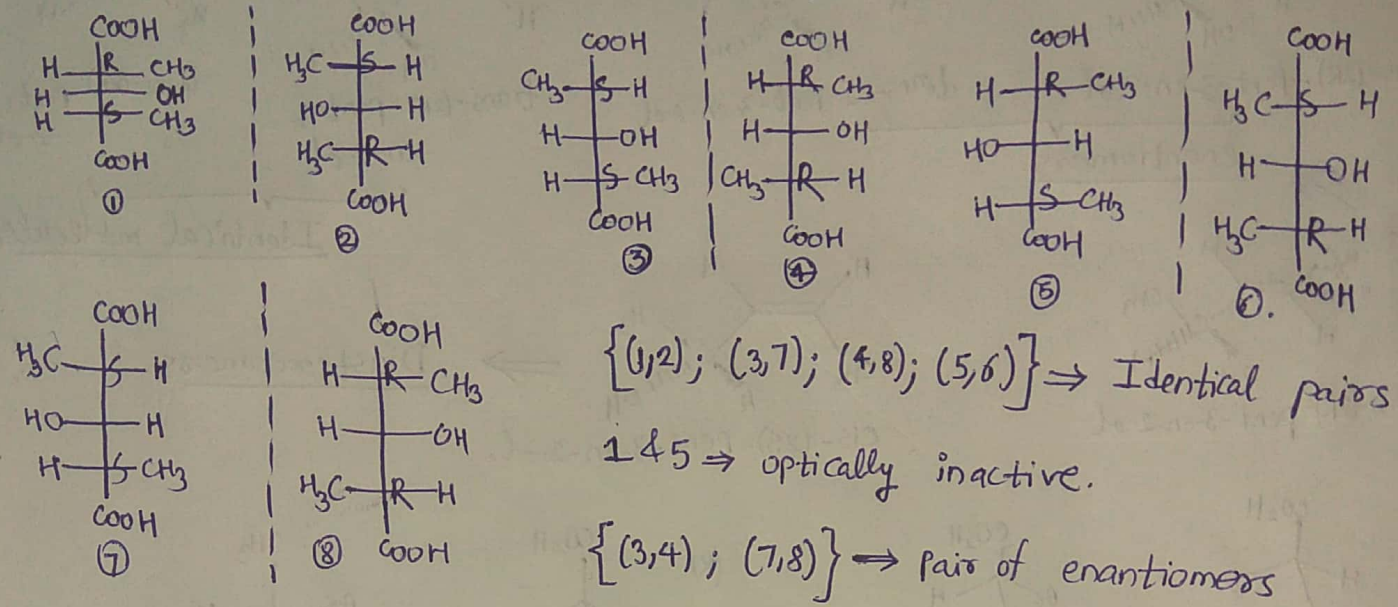 COOH
H R CH3
H OH
H S CH3
COOH
①
COOH
H3C S H
HO H
H3C R H
COOH
②
COOH
CH3 S H
H OH
H S CH3
COOH
③
COOH
H R CH3
H OH
CH3 R H
COOH
④
COOH
H R CH3
HO H
H S CH3
COOH
⑤
COOH
H3C S H
H OH
H3C R H
COOH
⑥.
COOH
H3C S H
HO H
H S CH3
COOH
⑦
COOH
H R CH3
H OH
H3C R H
COOH
⑧
{(1,2); (3,7); (4,8); (5,6)} ⇒ Identical pairs
1 & 5 ⇒ optically inactive.
{(3,4); (7,8)} → pair of enantiomers